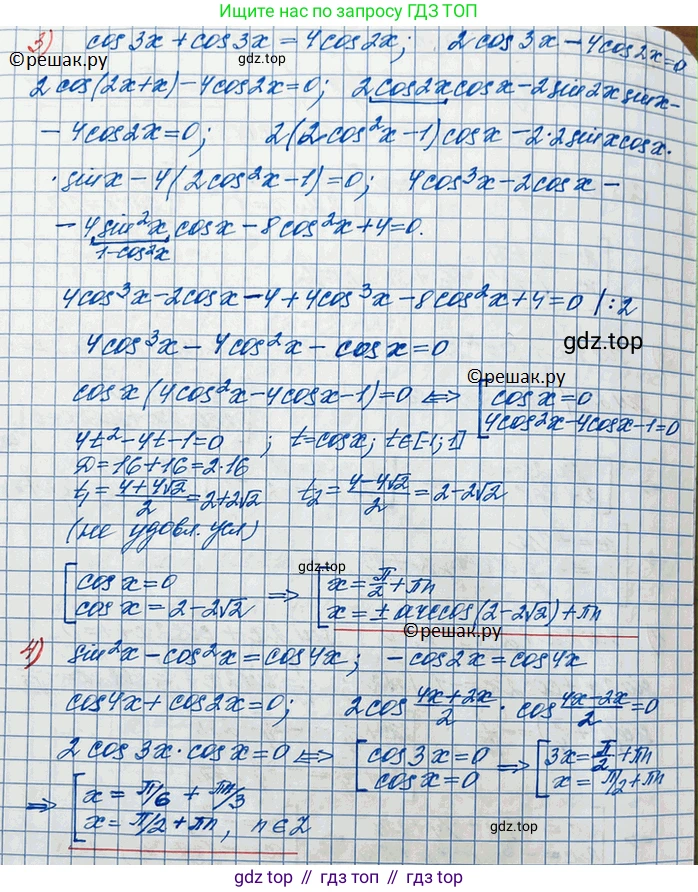 Ищите нас по запросу ГДЗ ТОП
3) cos3x + cos3x = 4cos2x; 2cos3x − 4cos2x=0
©решак.ру gdz.top
2cos(2x+x) − 4cos2x=0; 2cos2x cosx − 2sin2x sinx −
− 4cos2x=0; 2(2cos²x − 1) cosx − 2·2sinx cosx·
· sinx − 4(2cos²x − 1)=0; 4cos³x − 2cosx −
− 4sin²x cosx − 8cos²x + 4=0.
1−cos²x
4cos³x − 2cosx − 4 + 4cos³x − 8cos²x + 4 = 0 | :2
4cos³x − 4cos²x − cosx = 0
gdz.top
cosx (4cos²x − 4cosx − 1)=0 ⟺ [ cosx=0
©решак.ру
4cos2x−4cosx−1=0
4t²−4t−1=0 ; t=cosx; t∈[-1;1]
D=16+16=2·16
t₁ = (4+4√2)/2 = 2+2√2 t₂ = (4−4√2)/2 = 2−2√2
(не удовл. усл)
gdz.top
[ cosx=0 ⟹ [ x = π/2 + πn
cosx = 2−2√2 x = ± arccos(2−2√2)+πn
©решак.ру
4) sin²x − cos²x = cos4x; −cos2x = cos4x
cos4x + cos2x = 0; 2cos (4x+2x)/2 · cos (4x−2x)/2 = 0
2cos3x · cosx = 0 ⟺ [ cos3x = 0 ⟹ [ 3x = π/2 + πn
cosx = 0 x = π/2 + πn
⟹ [ x = π/6 + πn/3
x = π/2 + πn, n∈Z
gdz.top
Ищите нас на gdz.top